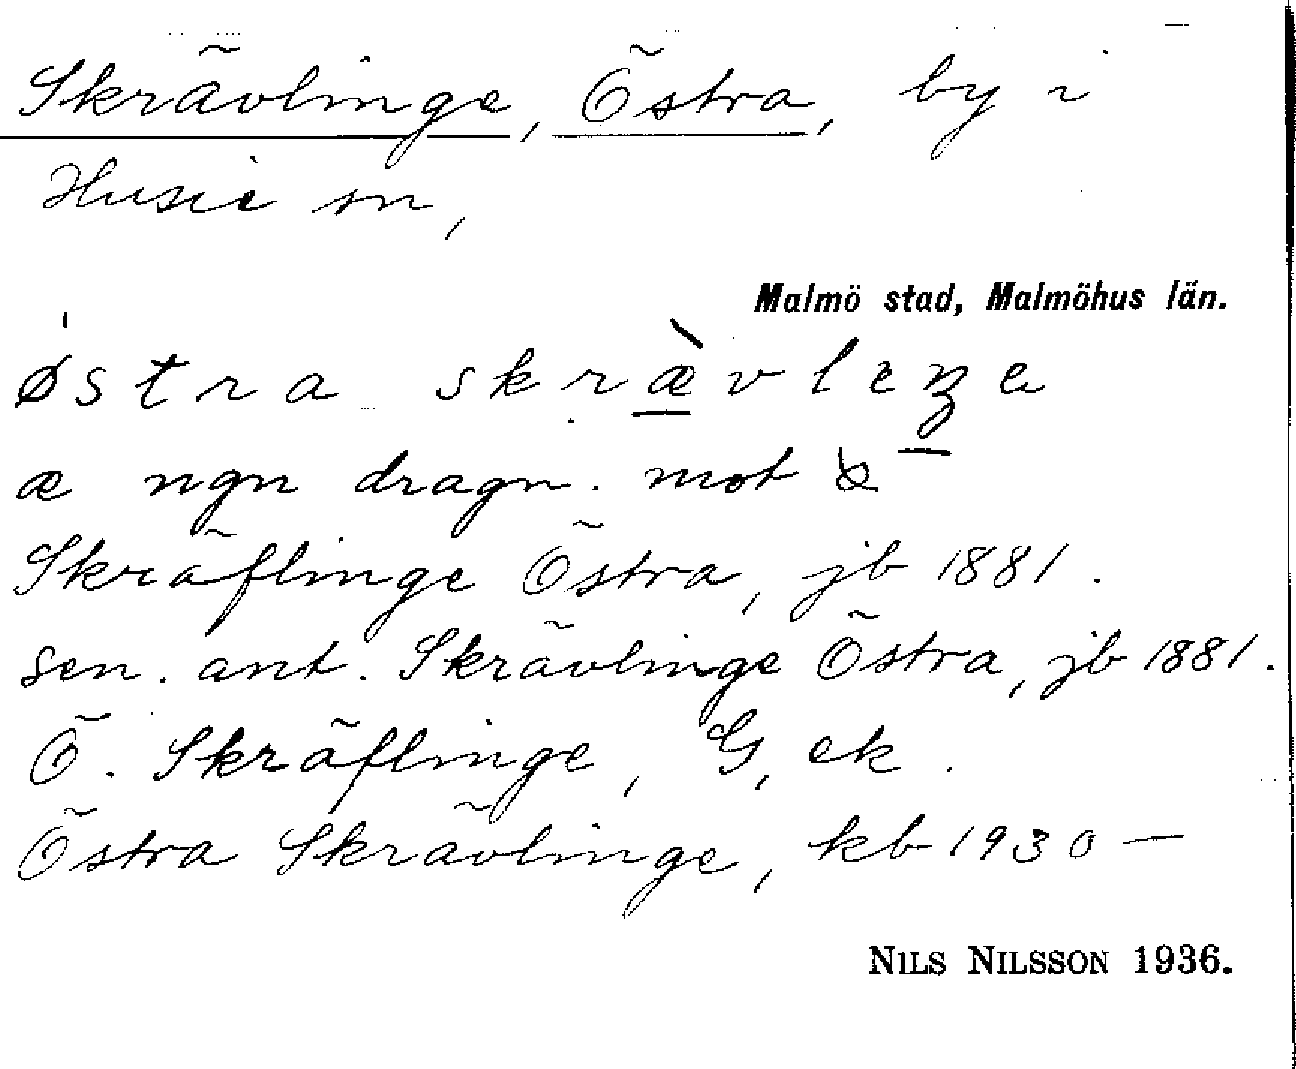 Skrävlinge, Östra, by i
Husie sn,
Malmö stad, Malmöhus län.
østra skrævleŋe
æ ngn dragn. mot
Skräflinge Östra, jb 1881.
sen. ant. Skrävlinge Östra, jb 1881.
Ö. Skräflinge, G, ek.
Östra Skrävlinge, kb 1930 —
NILS NILSSON 1936.